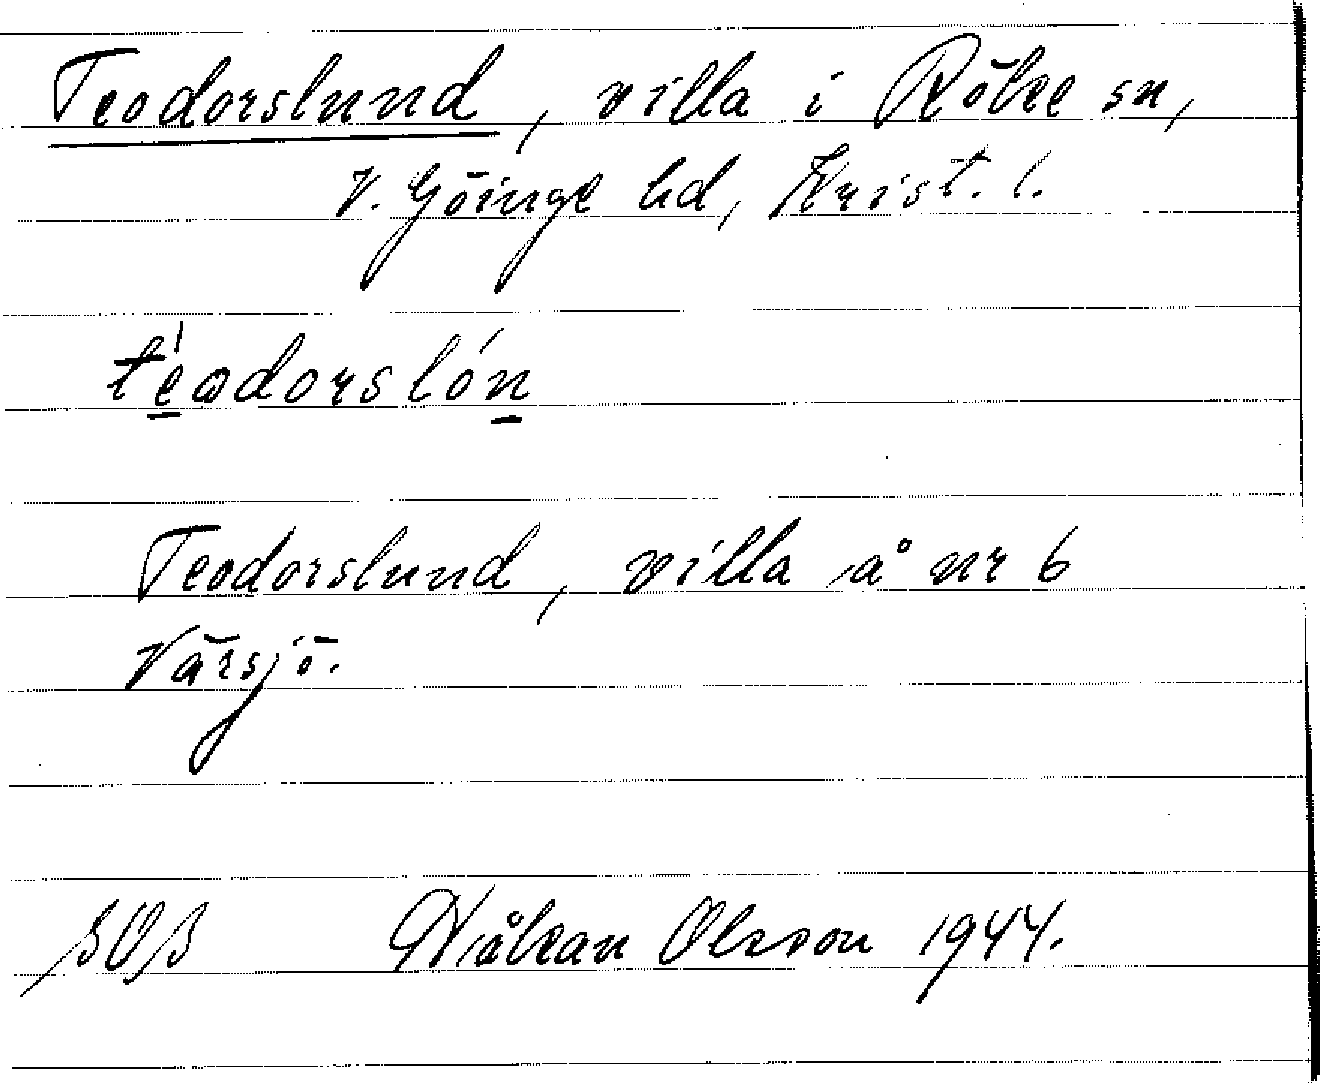 Teodorslund, villa i Röke sn,
V. Göinge hd, Krist. l.
téodorslón
Teodorslund, villa å nr 6
Värsjö.
Håkan Olsson 1944.